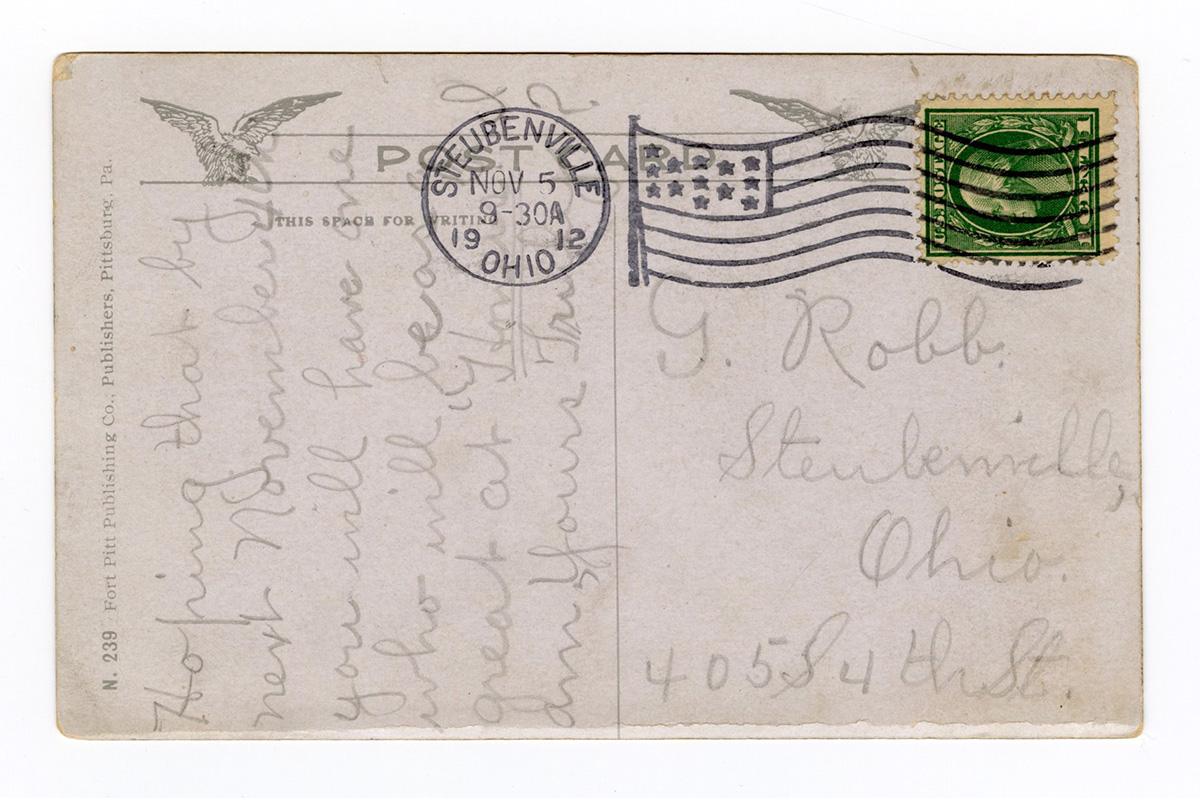 POST CARD
THIS SPACE FOR WRITING
STEUBENVILLE
NOV 5
9-30A
19 12
OHIO
U.S. POSTAGE
1 CENT 1
Hoping that by
next November 5th
you will have one
who will be as
great at Home
am Yours Tru
G. Robb.
Steubenville,
Ohio.
405 S 4th St.
N. 239 Fort Pitt Publishing Co., Publishers, Pittsburg, Pa.